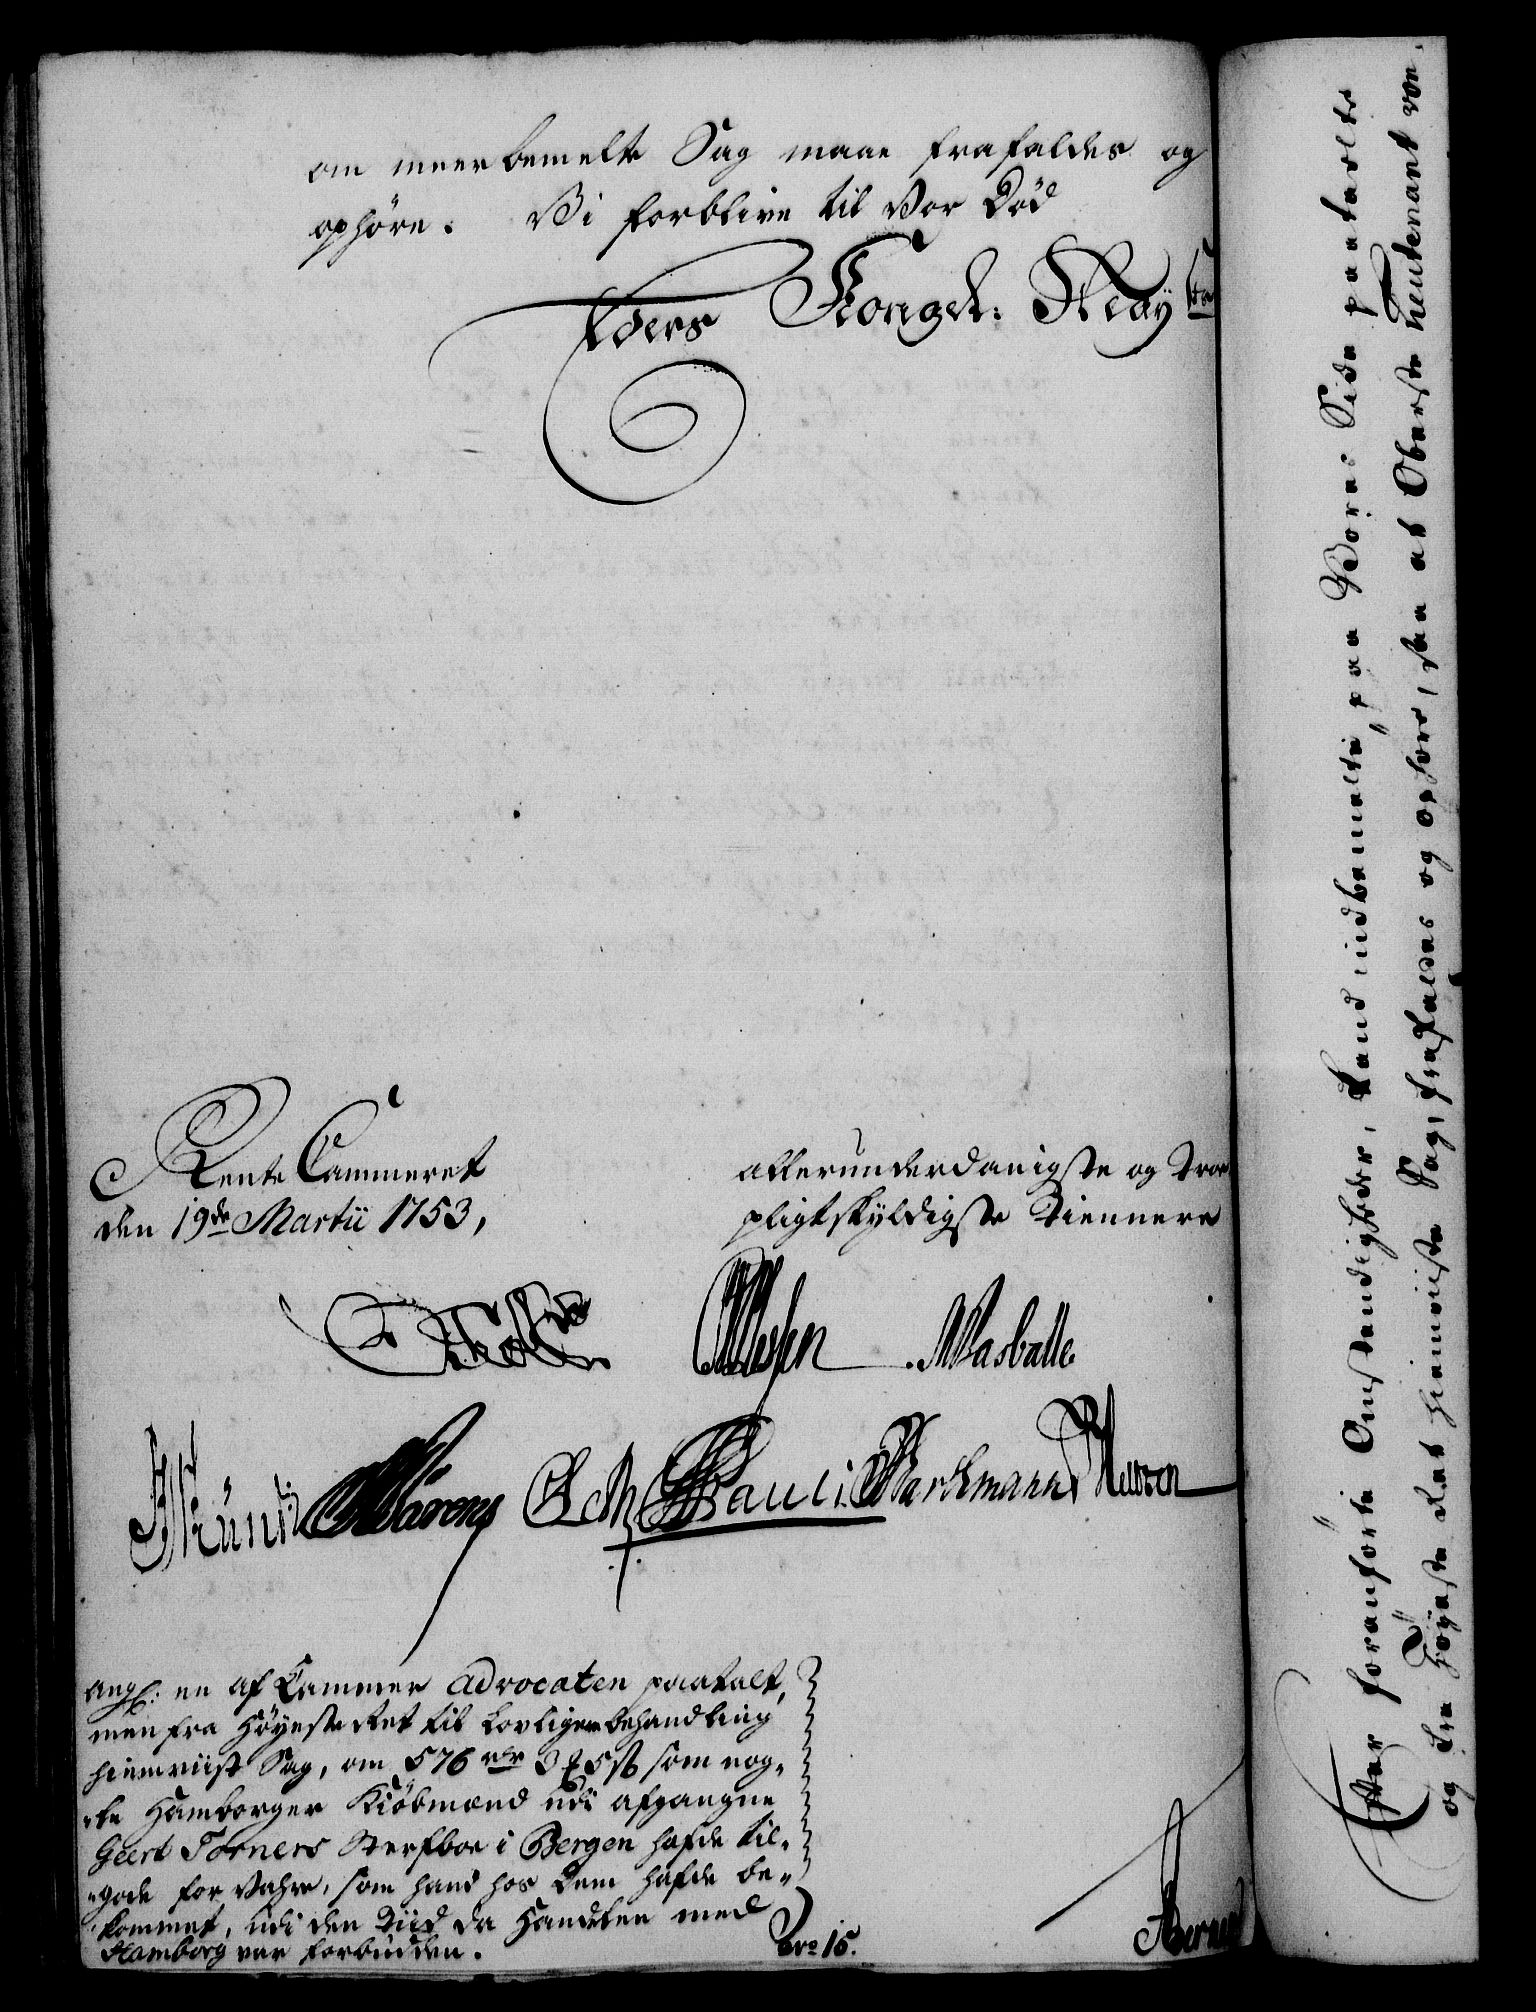 om meerbemelte Sag maae frafaldes og
ophöre. Vi forblive til Vor Död
Eders Kongel: May
Rente Cammeret
den 19de Martii 1753,
allerunderdanigste og Troe
pligtskyldigste Tiennere
Wasballe
Pauli Barchmann
ang: en af Cammer Advocaten paatalt,
men fra Höyeste Ret til Lovligere behandling
hiemviist Sag, om 576 rdr 3 ƒ 5 ß som nog-
-le Hamborger Kiöbmænd udi afgangne
Geert Törners Sterfboe i Bergen hafde til-
-gode for Vahre, som hand hos dem hafde be-
-kommet, udi den Tiid da Handelen med
Hamborg var forbudden.
Nro 15.
Efter foranförte Omstændigheder, Kand indbemelte, paa Vores Side paatalte
og fra Höyeste Ret hiemviiste Sag, frafaldes og ophöre, saa at Oberste Lieutenant von